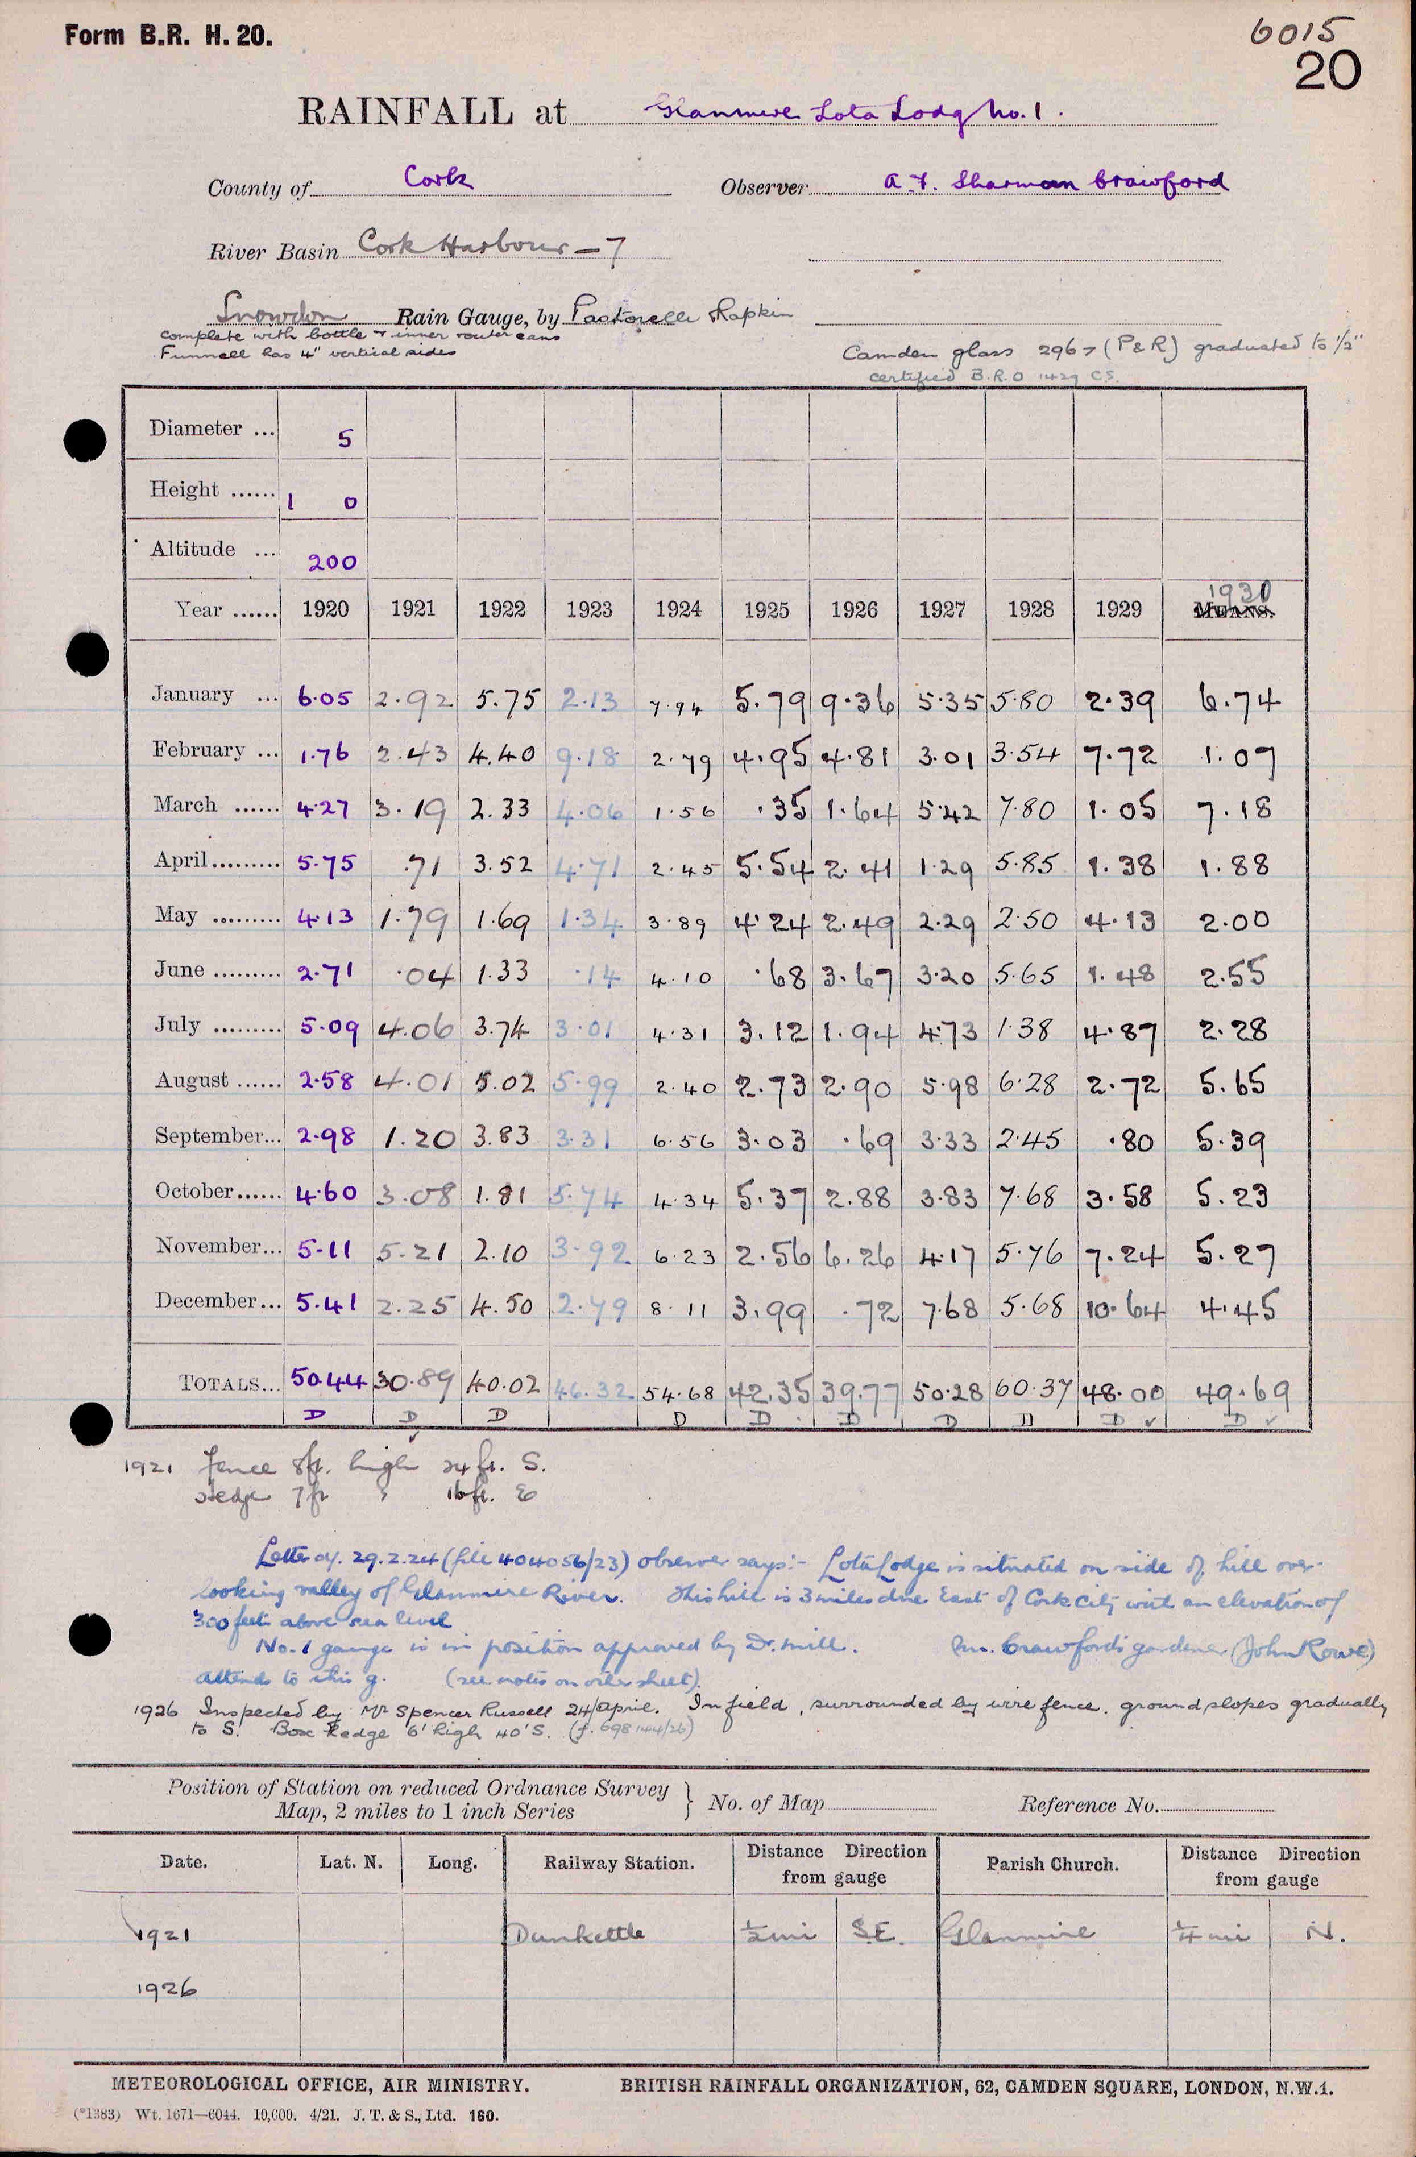 Form B.R. H. 20.
6015
20
RAINFALL at Glanmire Lota Lodge No. 1.
County of Cork Observer A. F. Sharman Crawford
River Basin Cork Harbour - 7
Snowdon Rain Gauge, by Pastorelli Rapkin
complete with bottle & inner & outer cans
Funnell has 4" vertical sides
Camden glass 2967 (P & R) graduated to 1/2"
certified B.R.O 1429 CS.
Diameter ... 5
Height ...... 1 0
Altitude ... 200
Year ...... 1920 1921 1922 1923 1924 1925 1926 1927 1928 1929 MEANS. 1930
January ... 6.05 2.92 5.75 2.13 7.94 5.79 9.36 5.35 5.80 2.39 6.74
February ... 1.76 2.43 4.40 9.18 2.79 4.95 4.81 3.01 3.54 7.72 1.07
March ...... 4.27 3.19 2.33 4.06 1.56 .35 1.64 5.42 7.80 1.05 7.18
April......... 5.75 .71 3.52 4.71 2.45 5.54 2.41 1.29 5.85 1.38 1.88
May ......... 4.13 1.79 1.69 1.34 3.89 4.24 2.49 2.29 2.50 4.13 2.00
June ......... 2.71 .04 1.33 .14 4.10 .68 3.67 3.20 5.65 1.48 2.55
July ......... 5.09 4.06 3.74 3.01 4.31 3.12 1.94 4.73 1.38 4.87 2.28
August ...... 2.58 4.01 5.02 5.99 2.40 2.73 2.90 5.98 6.28 2.72 5.65
September... 2.98 1.20 3.83 3.31 6.56 3.03 .69 3.33 2.45 .80 5.39
October...... 4.60 3.08 1.81 5.74 4.34 5.37 2.88 3.83 7.68 3.58 5.23
November... 5.11 5.21 2.10 3.92 6.23 2.56 6.26 4.17 5.76 7.24 5.27
December... 5.41 2.25 4.50 2.79 8.11 3.99 .72 7.68 5.68 10.64 4.45
TOTALS... 50.44 30.89 40.02 46.32 54.68 42.35 39.77 50.28 60.37 48.00 49.69
D D D D D D D D D ✓ D ✓
1921 Fence 8ft. high 24 ft. S.
Hedge 7ft " 16ft. E
Letter of. 29.2.24 (file 404056/23) observer says:- Lota Lodge is situated on side of hill over-
looking valley of Glanmire River. This hill is 3 miles due East of Cork City with an elevation of
300 feet above sea level
No. 1 gauge is in position approved by Dr. Mill. Mr. Crawford's gardener (John Rowe)
attends to this g. (see notes on other sheet).
1926 Inspected by Mr Spencer Russell 24/April. In field, surrounded by wire fence. ground slopes gradually
to S. Box hedge 6' high 40' S. (f. 698144/26)
Position of Station on reduced Ordnance Survey
Map, 2 miles to 1 inch Series } No. of Map Reference No.
Date. Lat. N. Long. Railway Station. Distance Direction from gauge Parish Church. Distance Direction from gauge
1921 Dunkettle 1/2 mi SE. Glanmire 1/4 mi N.
1926
METEOROLOGICAL OFFICE, AIR MINISTRY. BRITISH RAINFALL ORGANIZATION, 62, CAMDEN SQUARE, LONDON, N.W.1.
(*1383) Wt. 1671—6044. 10,000. 4/21. J. T. & S., Ltd. 160.